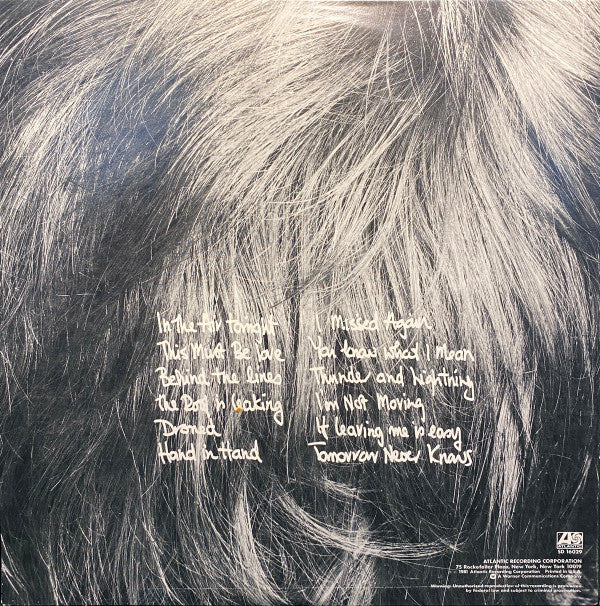 In the Air Tonight
This Must Be love
Behind the lines
the Roof is leaking
Droned
Hand in Hand
I Missed Again
You know what I Mean
Thunder and Lightning
I'm Not Moving
If leaving me is easy
Tomorrow Never Knows
ATLANTIC
SD 16029
ATLANTIC RECORDING CORPORATION
75 Rockefeller Plaza, New York, New York 10019
1981 Atlantic Recording Corporation Printed in U.S.A.
A Warner Communications Company
Warning: Unauthorized reproduction of this recording is prohibited
by Federal law and subject to criminal prosecution.